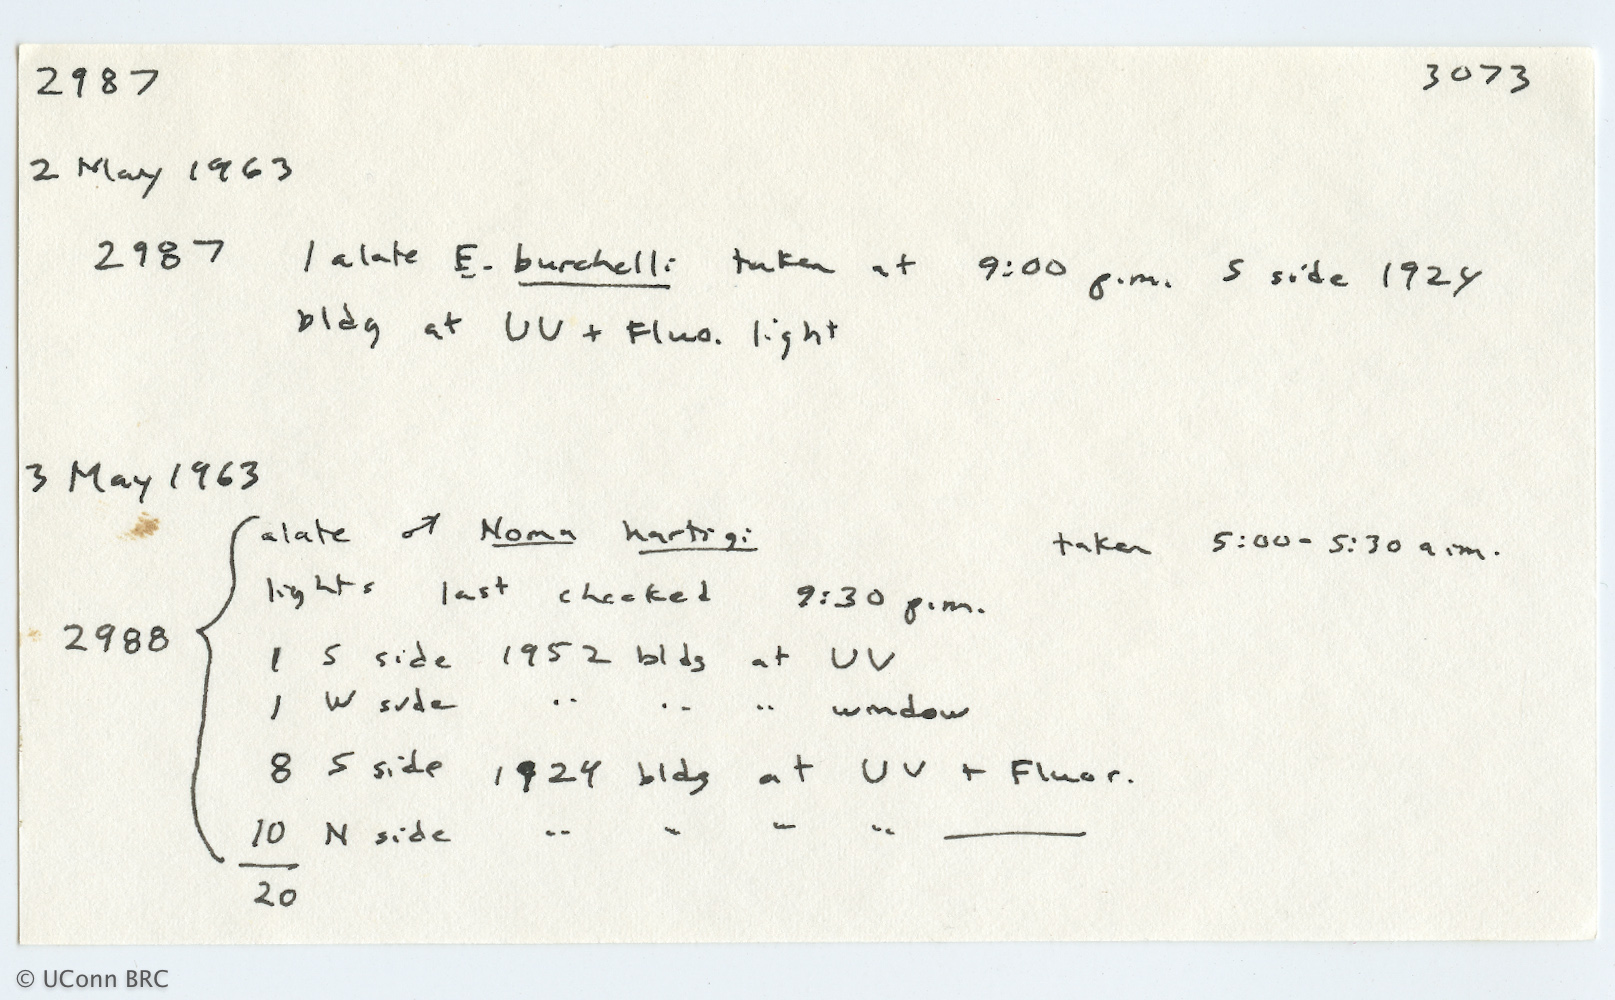 2987 3073
2 May 1963
2987 1 alate E. burchelli taken at 9:00 p.m. S side 1924
bldg at UV + Fluo. light
3 May 1963
alate ♂ Noma hartigi taken 5:00-5:30 a.m.
lights last checked 9:30 p.m.
2988
1 S side 1952 bldg at UV
1 W side " " " window
8 S side 1924 bldg at UV + Fluor.
10 N side " " " " ———
20
© UConn BRC